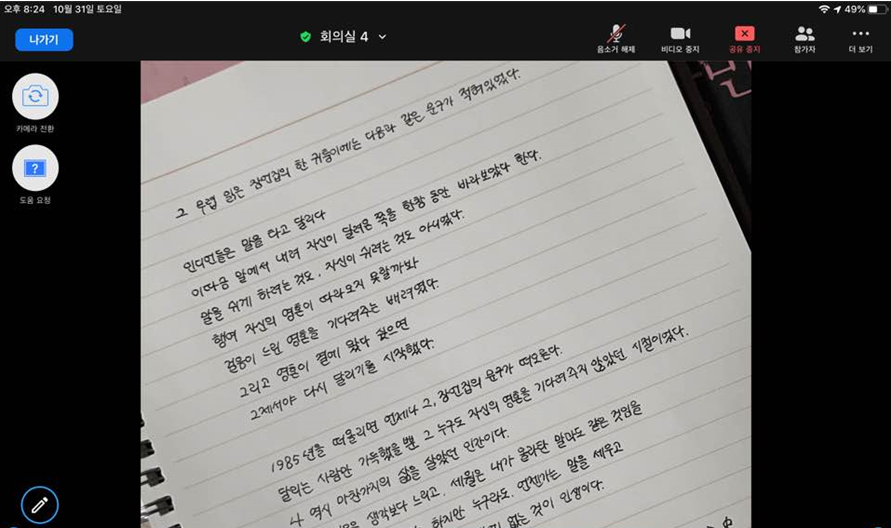 오후 8:24 10월 31일 토요일
49%
나가기
회의실 4
음소거 해제
비디오 중지
공유 중지
참가자
더 보기
카메라 전환
도움 요청
그 무렵 읽은 잠언집의 한 귀퉁이에는 다음과 같은 문구가 적혀있었다.
인디언들은 말을 타고 달리다
이따금 말에서 내려 자신이 달려온 쪽을 한참 동안 바라보았다 한다.
말을 쉬게 하려는 것도, 자신이 쉬려는 것도 아니었다.
행여 자신의 영혼이 따라오지 못할까봐
걸음이 느린 영혼을 기다려주는 배려였다.
그리고 영혼이 곁에 왔다 싶으면
그제서야 다시 달리기를 시작했다.
1985년을 떠올리면 언제나 그, 잠언집의 문구가 떠오른다.
달리는 사람만 가득했을 뿐, 그 누구도 자신의 영혼을 기다려주지 않았던 시절이었다.
나 역시 마찬가지의 삶을 살았던 인간이다.
생각보다 느리고, 세월은 내가 올라탄 말과도 같은 것임을
하지만 누구라도, 언젠가는 말을 세우고
없는 것이 인생이다.